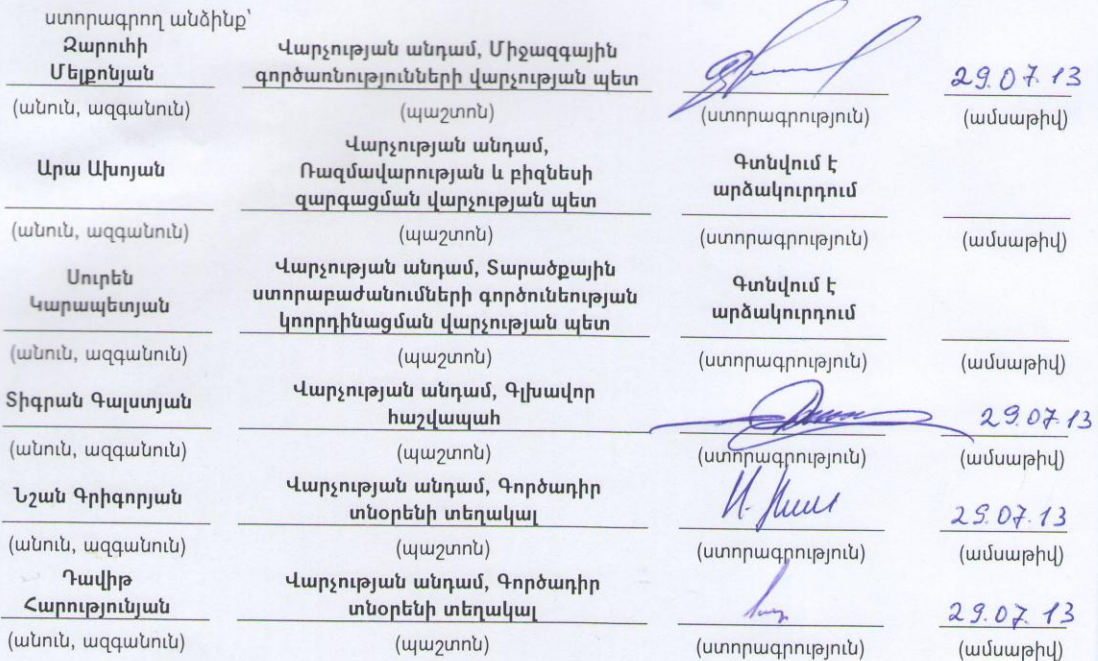 ստորագրող անձինք՝
Զարուհի Վարչության անդամ, Միջազգային
Մելքոնյան գործառնությունների վարչության պետ 29.07.13
(անուն, ազգանուն) (պաշտոն) (ստորագրություն) (ամսաթիվ)
Վարչության անդամ,
Արա Ախոյան Ռազմավարության և բիզնեսի Գտնվում է
զարգացման վարչության պետ արձակուրդում
(անուն, ազգանուն) (պաշտոն) (ստորագրություն) (ամսաթիվ)
Սուրեն Վարչության անդամ, Տարածքային Գտնվում է
Կարապետյան ստորաբաժանումների գործունեության արձակուրդում
կոորդինացման վարչության պետ
(անուն, ազգանուն) (պաշտոն) (ստորագրություն) (ամսաթիվ)
Տիգրան Գալստյան Վարչության անդամ, Գլխավոր
հաշվապահ 29.07.13
(անուն, ազգանուն) (պաշտոն) (ստորագրություն) (ամսաթիվ)
Նշան Գրիգորյան Վարչության անդամ, Գործադիր
տնօրենի տեղակալ 29.07.13
(անուն, ազգանուն) (պաշտոն) (ստորագրություն) (ամսաթիվ)
Դավիթ Վարչության անդամ, Գործադիր
Հարությունյան տնօրենի տեղակալ 29.07.13
(անուն, ազգանուն) (պաշտոն) (ստորագրություն) (ամսաթիվ)